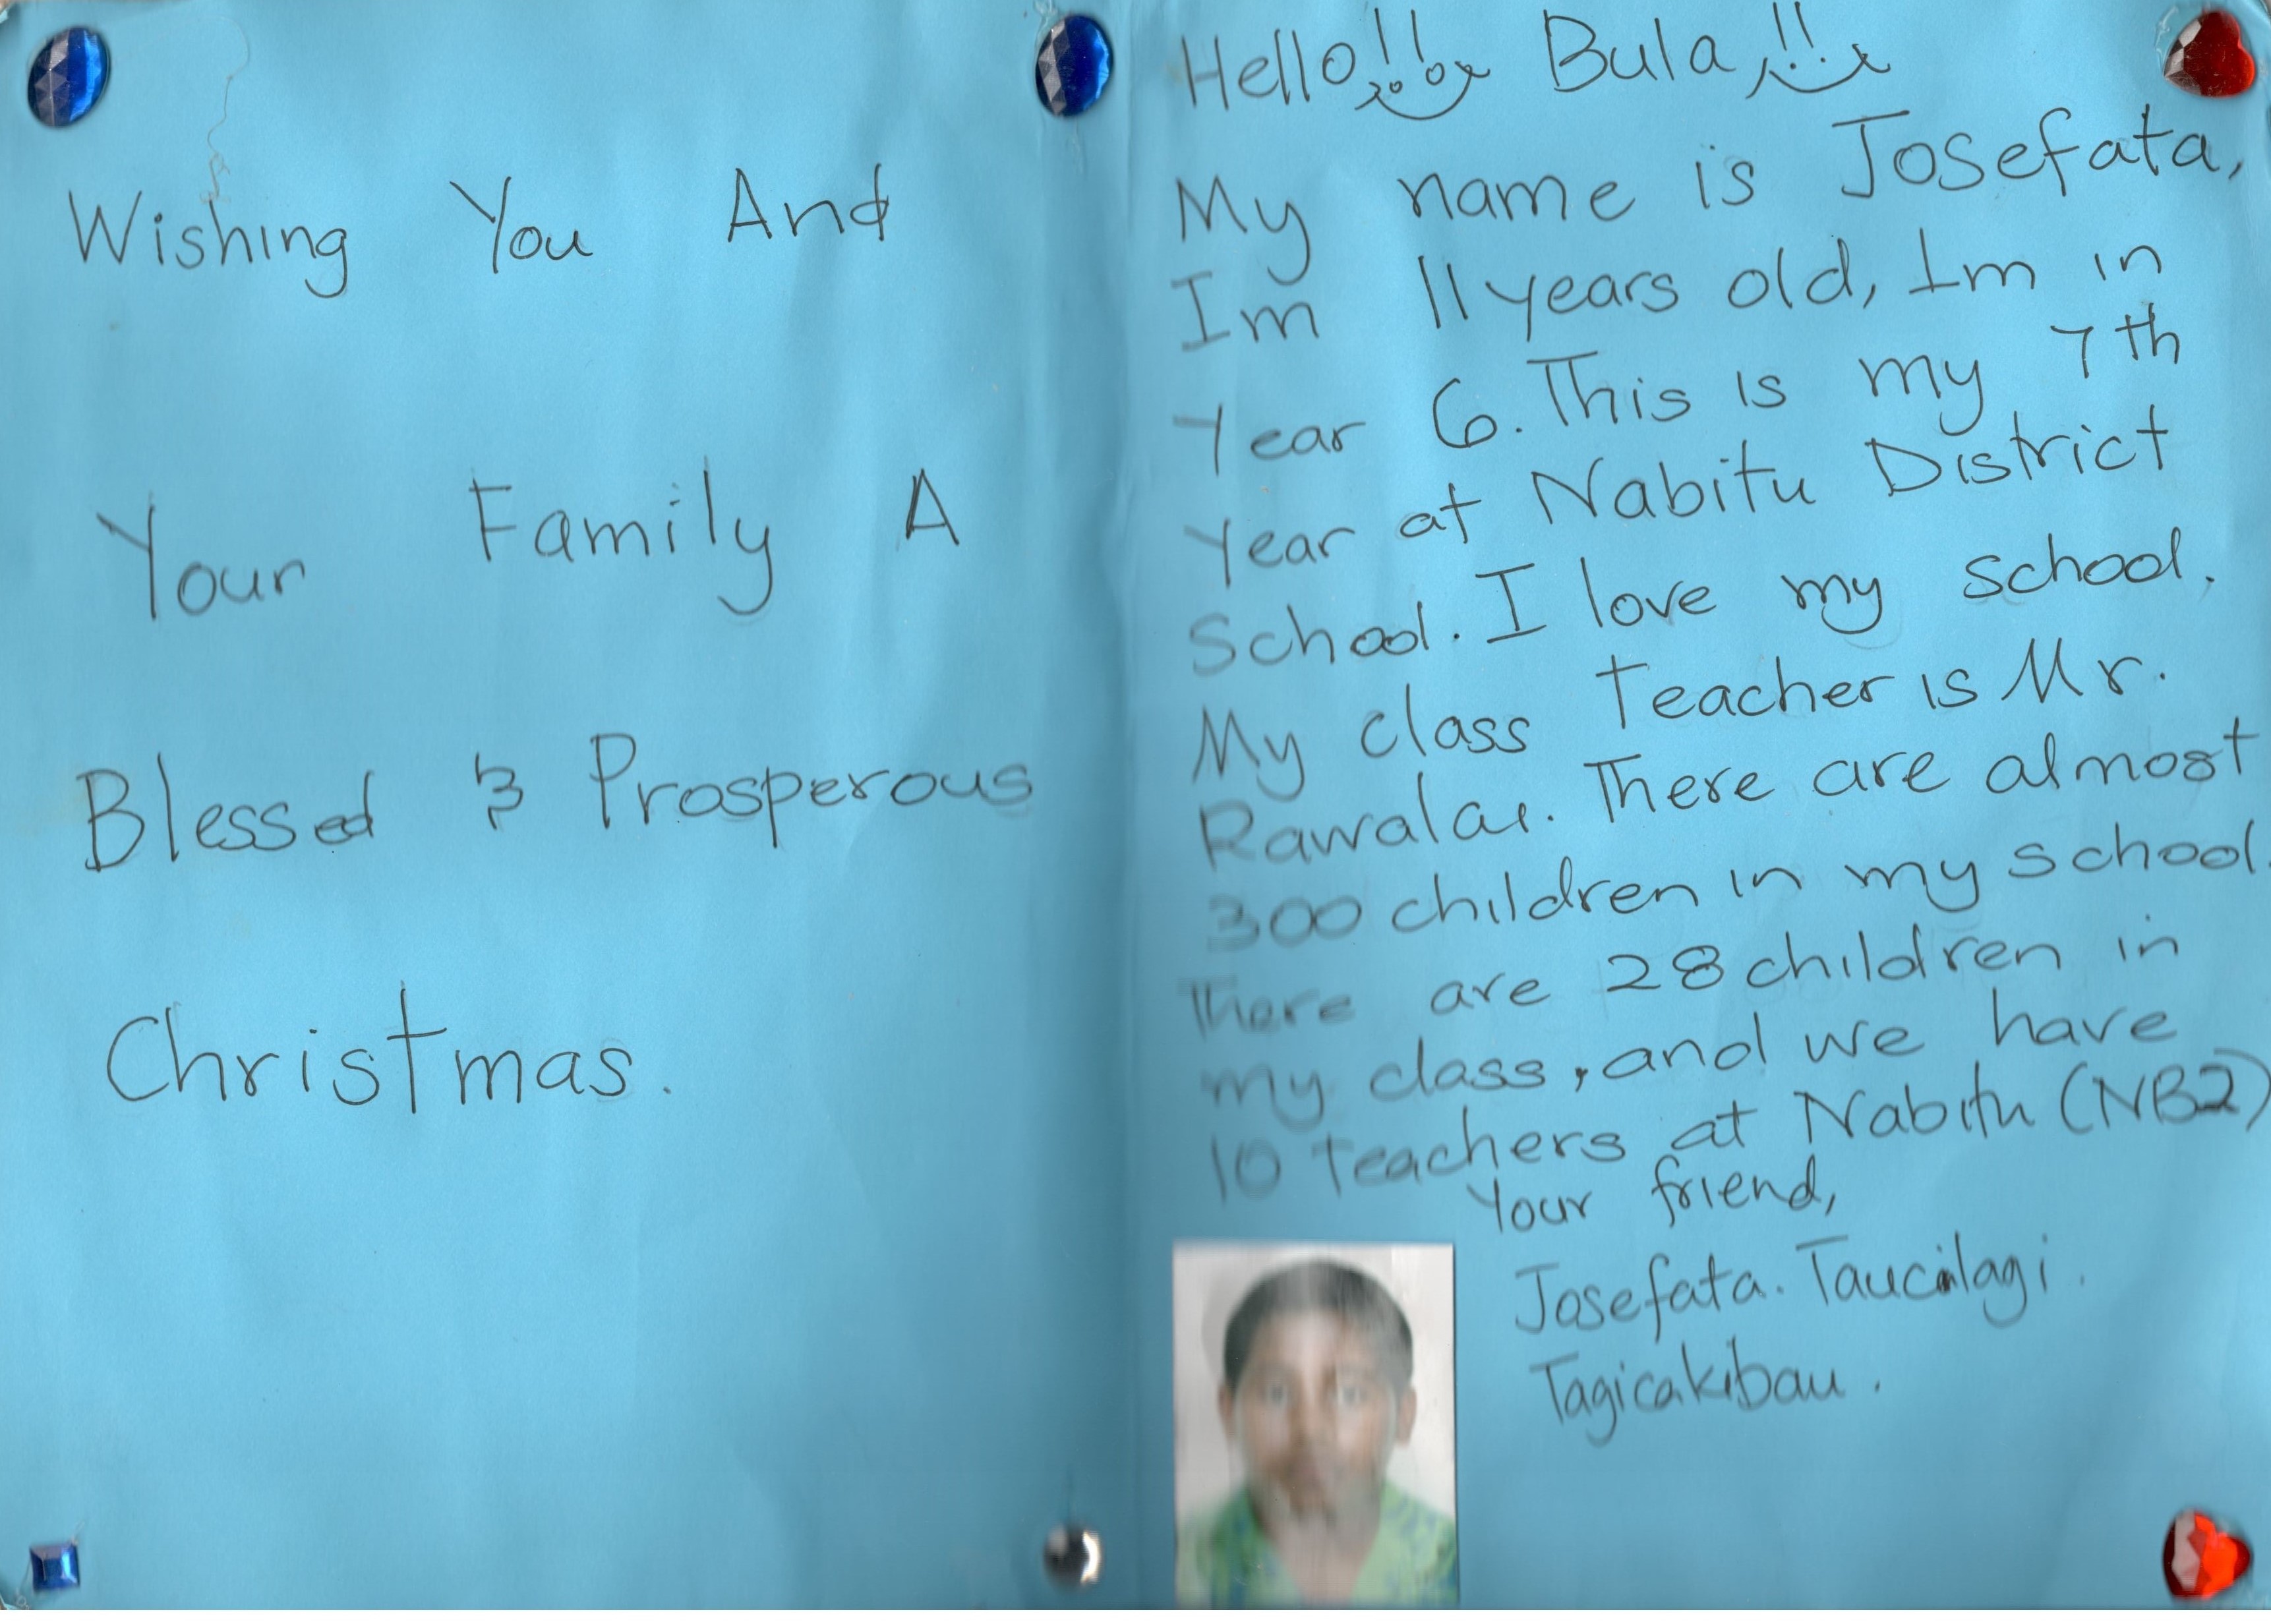 Wishing You And
Your Family A
Blessed & Prosperous
Christmas.
Hello!! Bula!!
My name is Josefata,
Im 11 years old, Im in
Year 6. This is my 7th
Year at Nabitu District
School. I love my school.
My class Teacher is Mr.
Rawalai. There are almost
300 children in my school.
There are 28 children in
my class, and we have
10 Teachers at Nabitu (NB2)
Your friend,
Josefata. Taucilagi.
Tagicakibau.